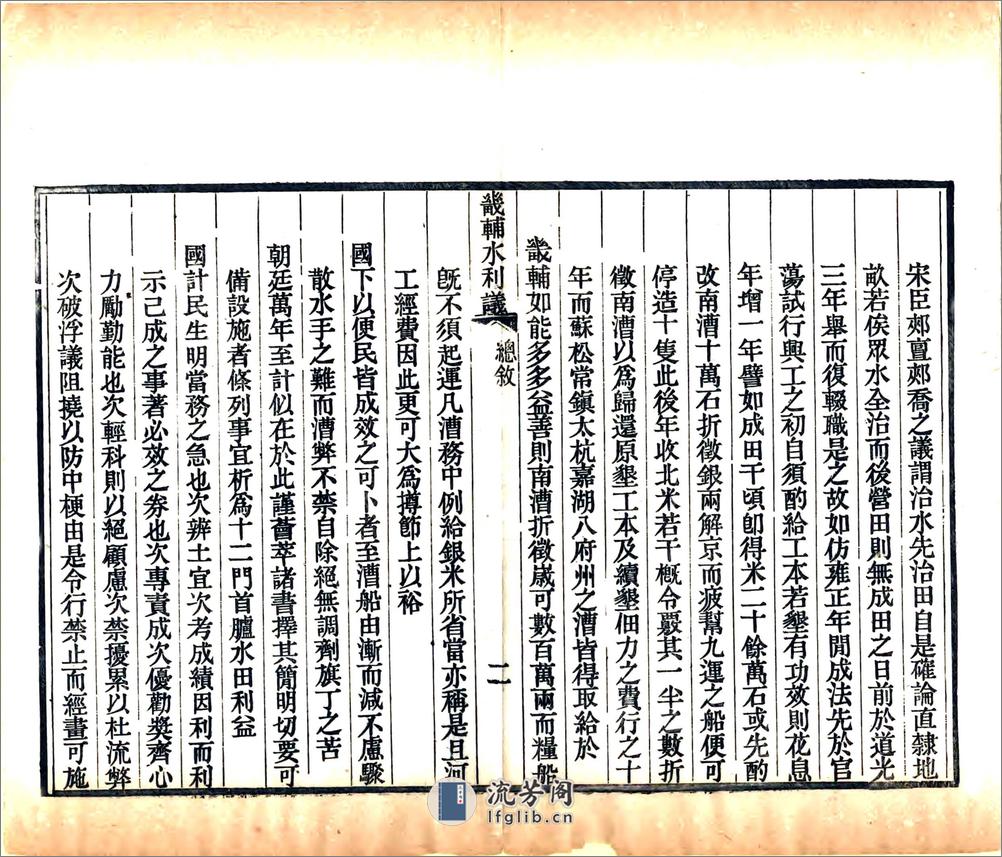 宋臣郟亶郟喬之議謂治水先治田自是確論直隸地
畝若俟眾水全治而後營田則無成田之日前於道光
三年舉而復輟職是之故如仿雍正年閒成法先於官
蕩試行興工之初自須酌給工本若墾有功效則花息
年增一年譬如成田千頃卽得米二十餘萬石或先酌
改南漕十萬石折徵銀兩解京而疲幫九運之船便可
停造十隻此後年收北米若干概令覈其一半之數折
徵南漕以為歸還原墾工本及續墾佃力之費行之十
年而蘇松常鎮太杭嘉湖八府州之漕皆得取給於
畿輔如能多多益善則南漕折徵歲可數百萬兩而糧船
畿輔水利議 總敘 二
旣不須起運凡漕務中例給銀米所省當亦稱是且河
工經費因此更可大為撙節上以裕
國下以便民皆成效之可卜者至漕船由漸而減不慮驟
散水手之難而漕弊不禁自除絕無調劑旗丁之苦
朝廷萬年至計似在於此謹薈萃諸書擇其簡明切要可
備設施者條列事宜析為十二門首臚水田利益
國計民生明當務之急也次辨土宜次考成績因利而利
示己成之事著必效之券也次專責成次優勸獎齊心
力勵勤能也次輕科則以絕顧慮次禁擾累以杜流弊
次破浮議阻撓以防中梗由是令行禁止而經畫可施
流芳閣
lfglib.cn